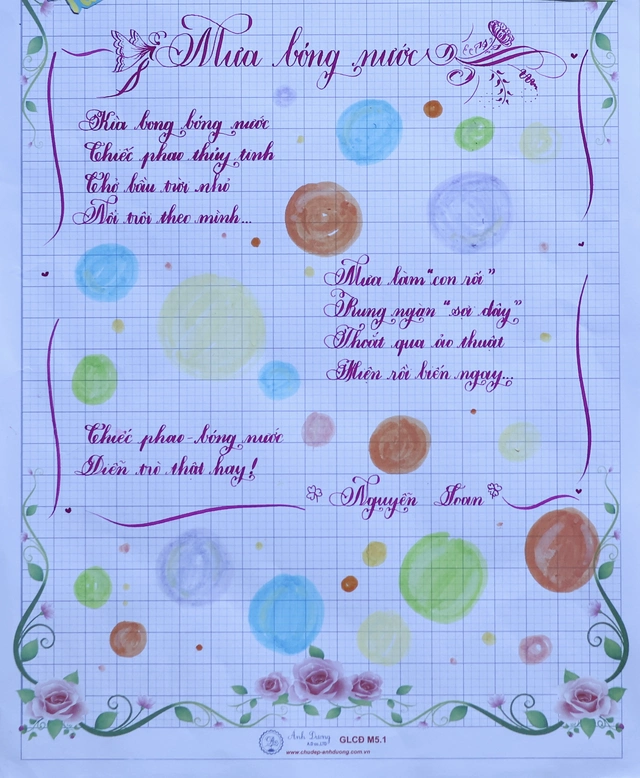 Mưa bóng nước
Kìa bong bóng nước
Chiếc phao thủy tinh
Chở bầu trời nhỏ
Nổi trôi theo mình...
Mưa làm "con rối"
Rung ngàn "sợi dây"
Thoắt qua ảo thuật
Hiện rồi biến ngay...
Chiếc phao-bóng nước
Diễn trò thật hay!
Nguyễn Toan
Ánh Dương
GLCĐ M5.1
www.chudep-anhduong.com.vn